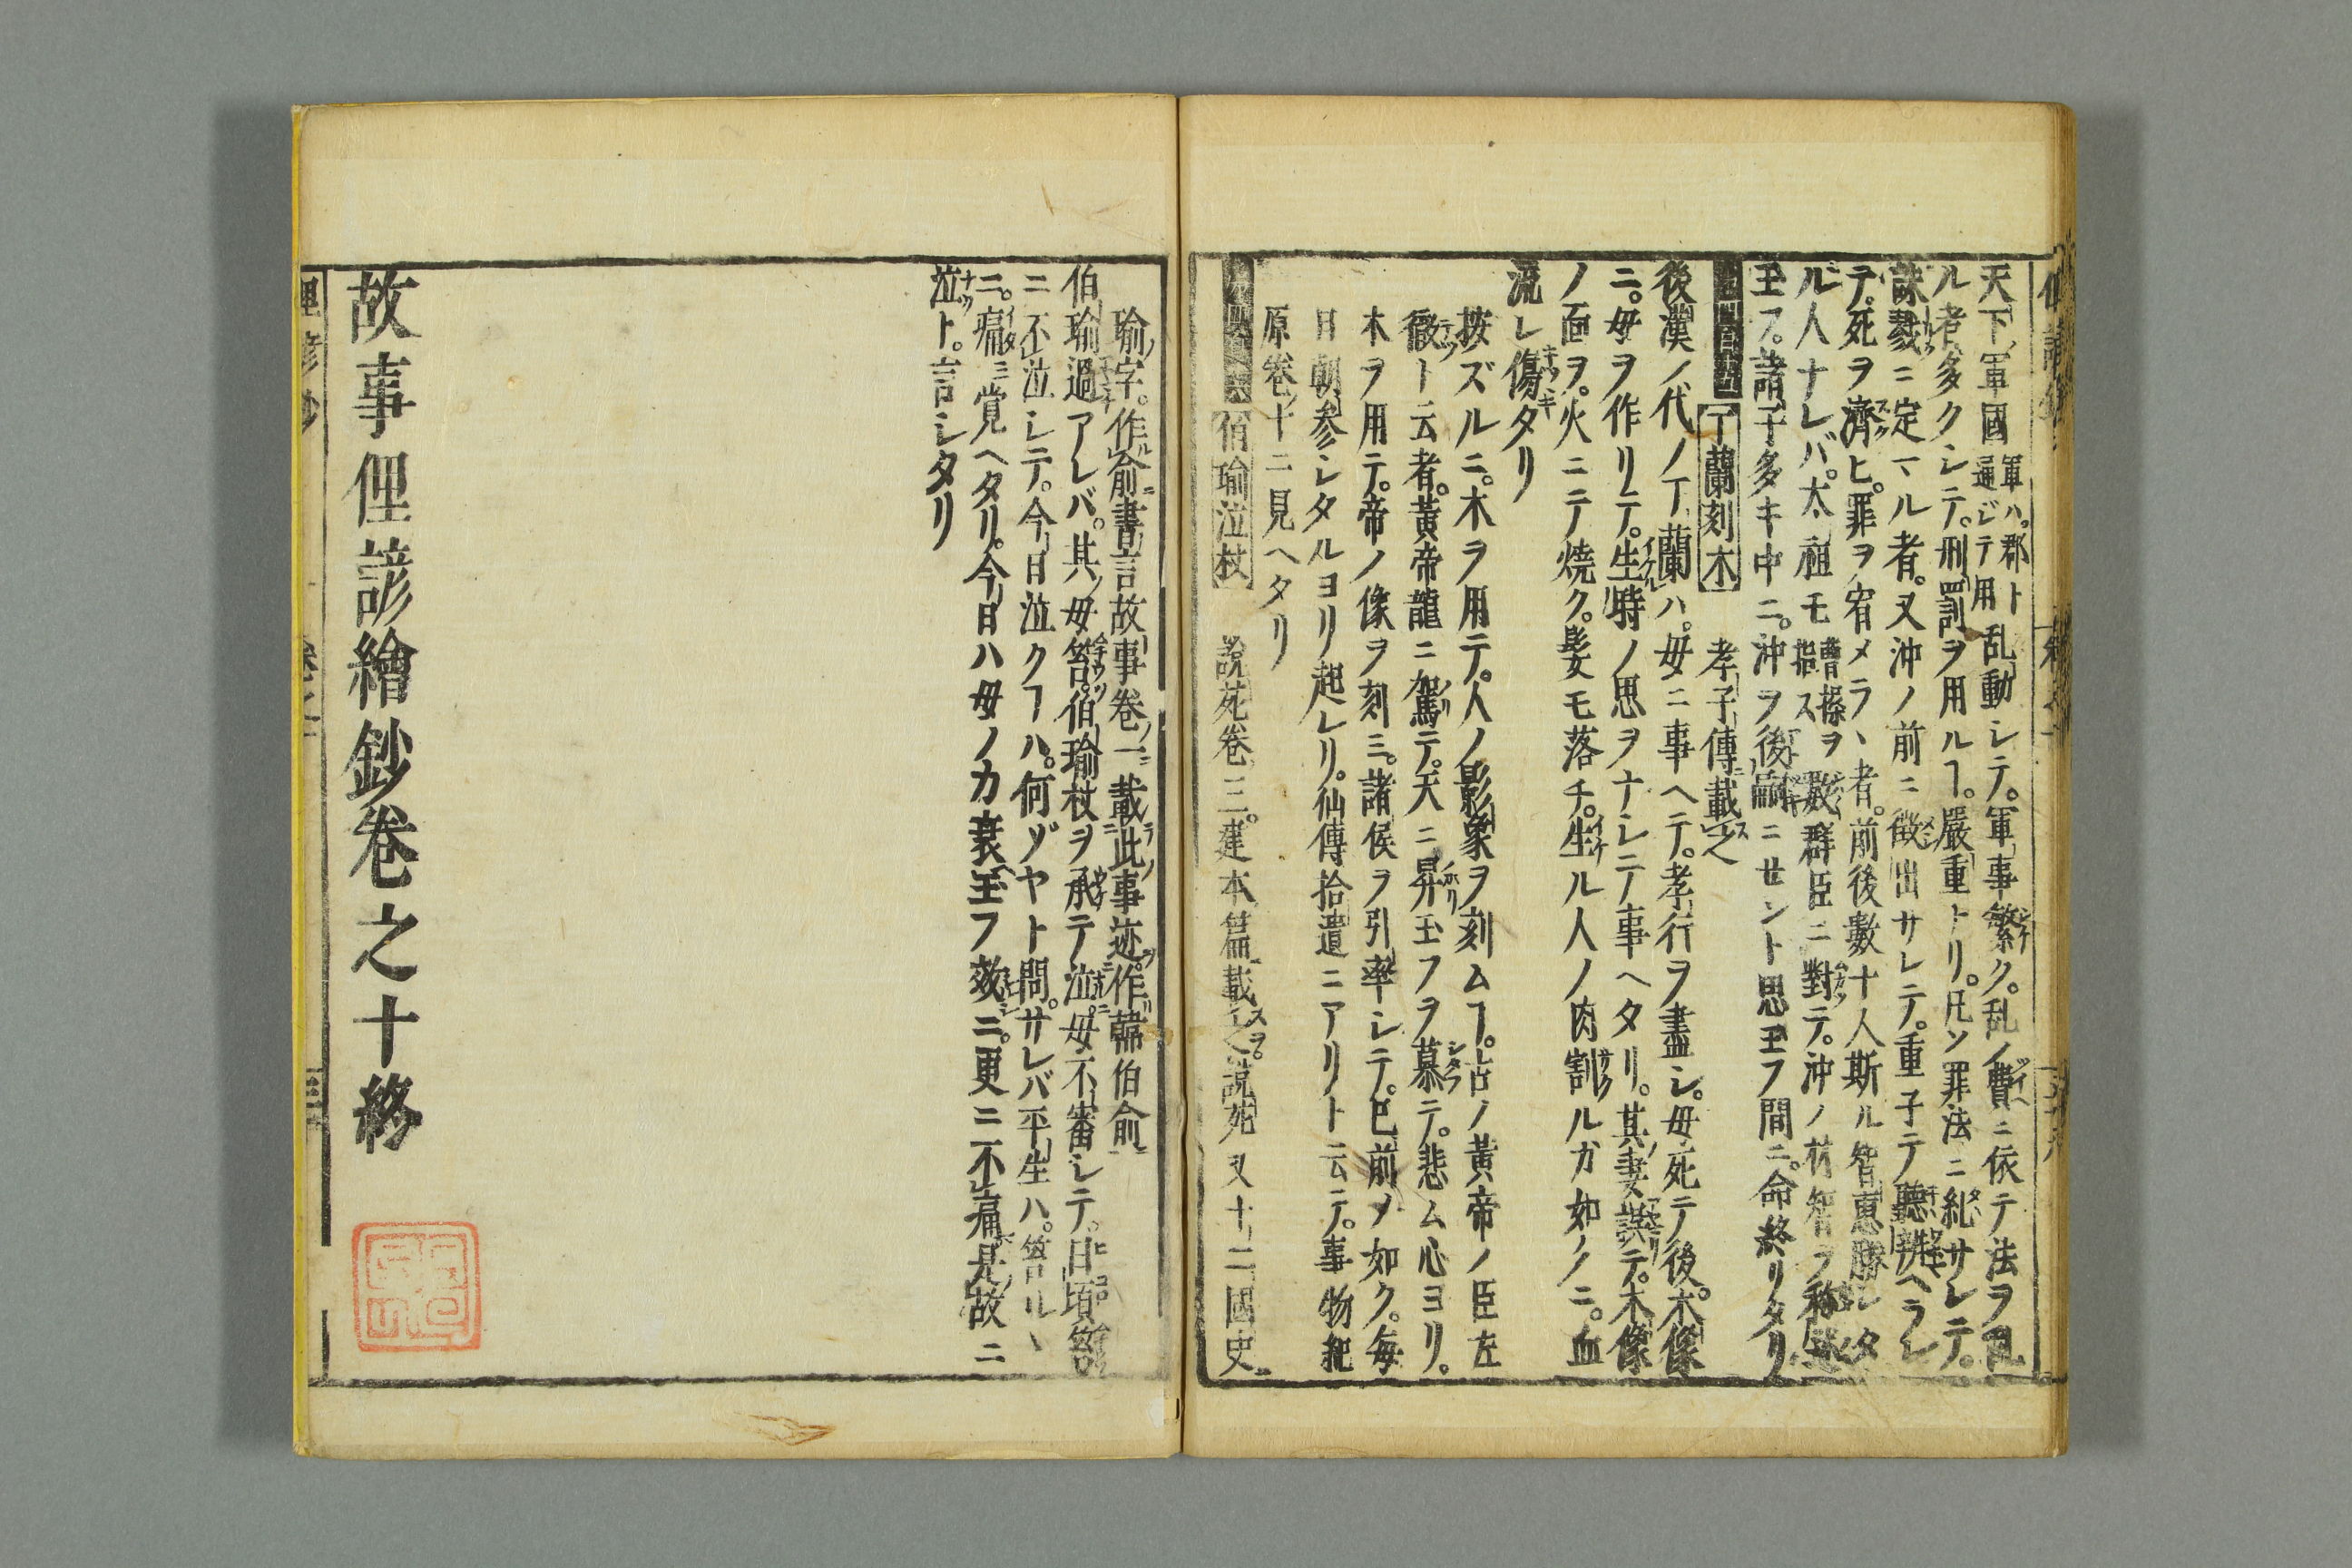 天下軍國軍ハ。郡ト通ジテ用乱動シテ。軍事繁ク。乱ノ費ニ依テ法ヲ
ル者多クシテ。刑罰ヲ用ルヿ。嚴重トリ。凡ソ罪法ニ糺サレテ。
誅戮ニ定マル者。又沖ノ前ニ徴出サレテ。重子テ聽ヘラレ
テ。死ヲ濟ヒ。罪ヲ宥メラヽ者。前後數十人斯ル智惠勝レタ
ル人ナレバ。太祖モ曹操ヲ指ス數群臣ニ對テ。沖ノ材智ヲ称
玉フ。諸子多キ中ニ。沖ヲ後嗣ニセント思玉フ間ニ。命終リタリ
丁蘭刻木 孝子傳載之
後漢ノ代ノ丁蘭ハ。毋ニ事ヘテ。孝行ヲ盡シ。毋死テ後。木像
ニ。毋ヲ作リテ。生時ノ思ヲナシニ事ヘタリ。其妻誤テ。木像
ノ面ヲ。火ニテ焼ク。髮モ落チ。生ル人ノ肉割ルガ如ノニ。血
流レ傷タリ
按ズルニ。木ヲ用テ。人ノ影象ヲ刻ムヿ。古ノ黃帝ノ臣左
徹ト云者。黃帝龍ニ駕テ。天ニ昇玉フヲ慕テ。悲ム心ヨリ。
木ヲ用テ。帝ノ像ヲ刻ミ。諸侯ヲ引率シテ。已前ノ如ク。毎
日朝参シタルヨリ起レリ。仙傳拾遺ニアリト云テ。事物紀
原卷十ニ見ヘタリ
伯瑜泣杖 說苑卷三。建本篇載之。說苑又十二國史
瑜字。作俞書言故事卷一載此事迹。作韓伯俞
伯瑜過アレバ。其ノ毋笞。伯瑜杖ヲ承テ泣。毋不審シテ。日頃笞
ニ不泣シテ。今日泣クヿハ。何ゾヤト問。サレバ平生ハ。笞ルヽ
ニ。痛ミ覚ヘタリ。今日ハ毋ノ力衰玉フ效ニ。更ニ不痛是故ニ
泣ト。言シタリ
故事俚諺繪鈔卷之十終